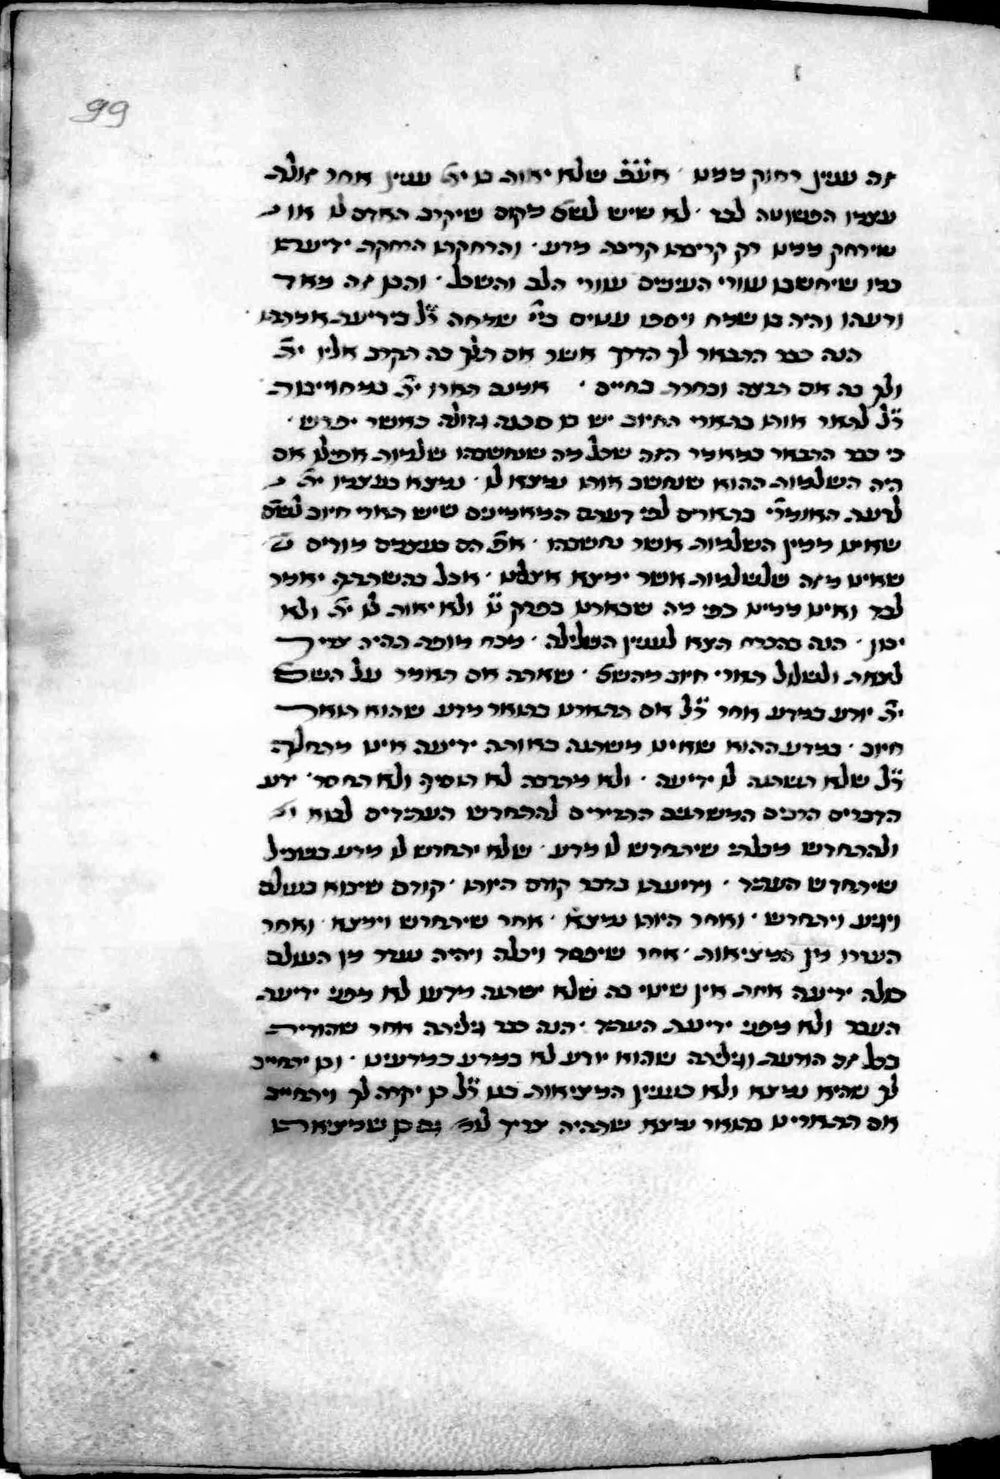 99
זה ענין רחוק ממנו · אעפ שלא יאות בו ית' ענין אחר זולת
עצמו הפשוטה לבד · לא שיש לשם מקום שיקרב האדם לו או
שירחק ממנו רק קריבתו קריבה מדע · והרחקתו הרחקת ידיעתו
כמו שיחשבו עורי העינים עורי הלב והשכל · והבן זה מאד
ודעהו והיה בו שמח ויספו ענוים ביי' שמחה ר"ל בידיעת אמתתו ·
הנה כבר התבאר לך הדרך אשר אם תלך בה תקרב אליו ית'
ולך בה אם תרצה ובחרת בחיים · אמנם תארו ית' במחוייבות
ר"ל לתאר אותו בתארי החיוב יש בו סכנה גדולה כאשר יפרש ·
כי כבר התבאר במאמר הזה שכל מה שנחשבהו שלמות אפילו אם
היה השלמות ההוא שנחשב אותו נמצא לו · נמצא בעצמו ית'
לדעת האומרי' בתארים לפי דעתם המאמינים שיש תארי חיוב לשם
שאינו ממין השלמות אשר נחשבהו · אך הם בעצמם מודים
שאינו מזה שלשלמות אשר ימצא אצלנו · אבל בהשתתף יאמר
לבד ואינו ממינו כפי מה שבארנו בפרק נ"ו ולא יאות לו ית' ולא
יכון · הנה בהכרח תצא לענין השלילה · מכח מופת תהיה צריך
לצאת ולשלול תארי חיוב מהשם · שאתה אם תאמר על השם
ית' יודע במדע אחד ר"ל אם תתארנו בתואר מדע שהוא תואר
חיוב · במדע ההוא שאינו משתנה באותה ידיעה אינו מתחלף
ר"ל שלא תשתנה לו ידיעה · ולא מתרבה לא תוסיף ולא תחסר · ידע
הדברים הרבים המשתנים התדירים להתחדש העתידים לבוא
ולהתחדש מבלתי שיתחדש לו מדע · שלא יתחדש לו מדע בשביל
שיתחדש העתיד · וידיעתו בדבר קודם היותו · קודם שיבוא בעולם
ויגיע ויתחדש · ואחר היותו נמצא · אחר שיתחדש וימצא · ואחר
העדרו מן המציאות · אחר שיפסד ויכלה ויהיה נעדר מן העולם
כולה ידיעה אחת אין שינוי בה שלא ישתנה מדעו לא מפני ידיעת
העבר ולא מפני ידיעת העתיד · הנה כבר גלית אחר שהודית
בכל זה הודעת וגלית שהוא יודע לא במדע כמדעינו · וכן יתחייב
לך שהיא נמצא ולא כענין המציאות בנו ר"ל כן יקרה לך ויתחייב
אם תתארינו בתואר נמצא שתהיה צריך לומ' גם כן שמציאותו